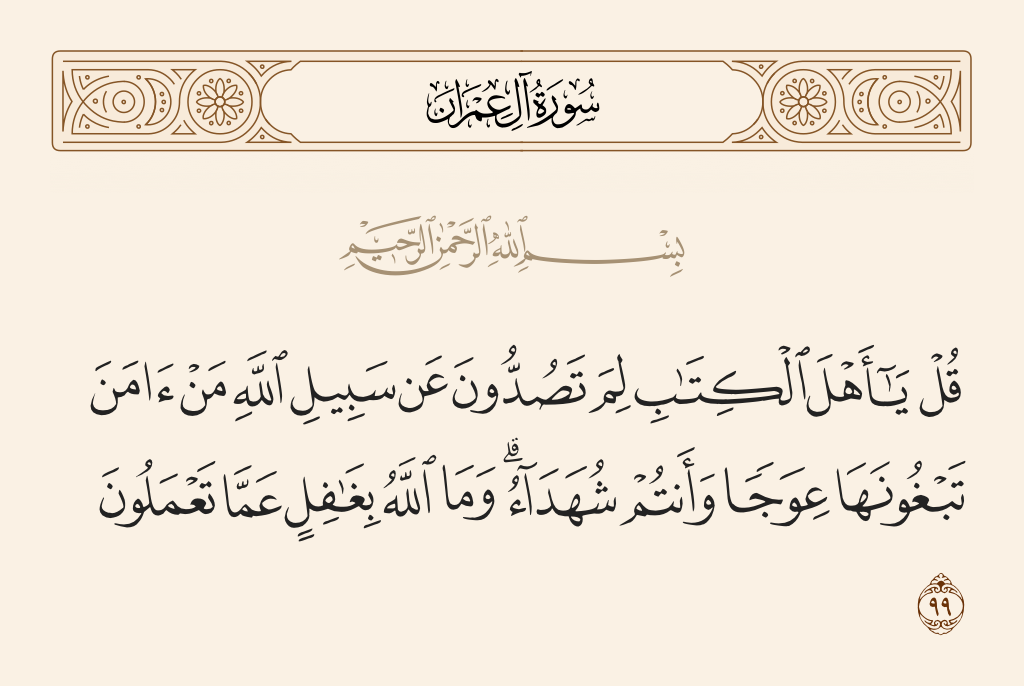 سُورَةُ آلِ عِمْرَانَ
بِسْمِ ٱللَّهِ ٱلرَّحْمَٰنِ ٱلرَّحِيمِ
قُلْ يَـٰٓأَهْلَ ٱلْكِتَـٰبِ لِمَ تَصُدُّونَ عَن سَبِيلِ ٱللَّهِ مَنْ ءَامَنَ
تَبْغُونَهَا عِوَجًا وَأَنتُمْ شُهَدَآءُ ۗ وَمَا ٱللَّهُ بِغَـٰفِلٍ عَمَّا تَعْمَلُونَ
٩٩